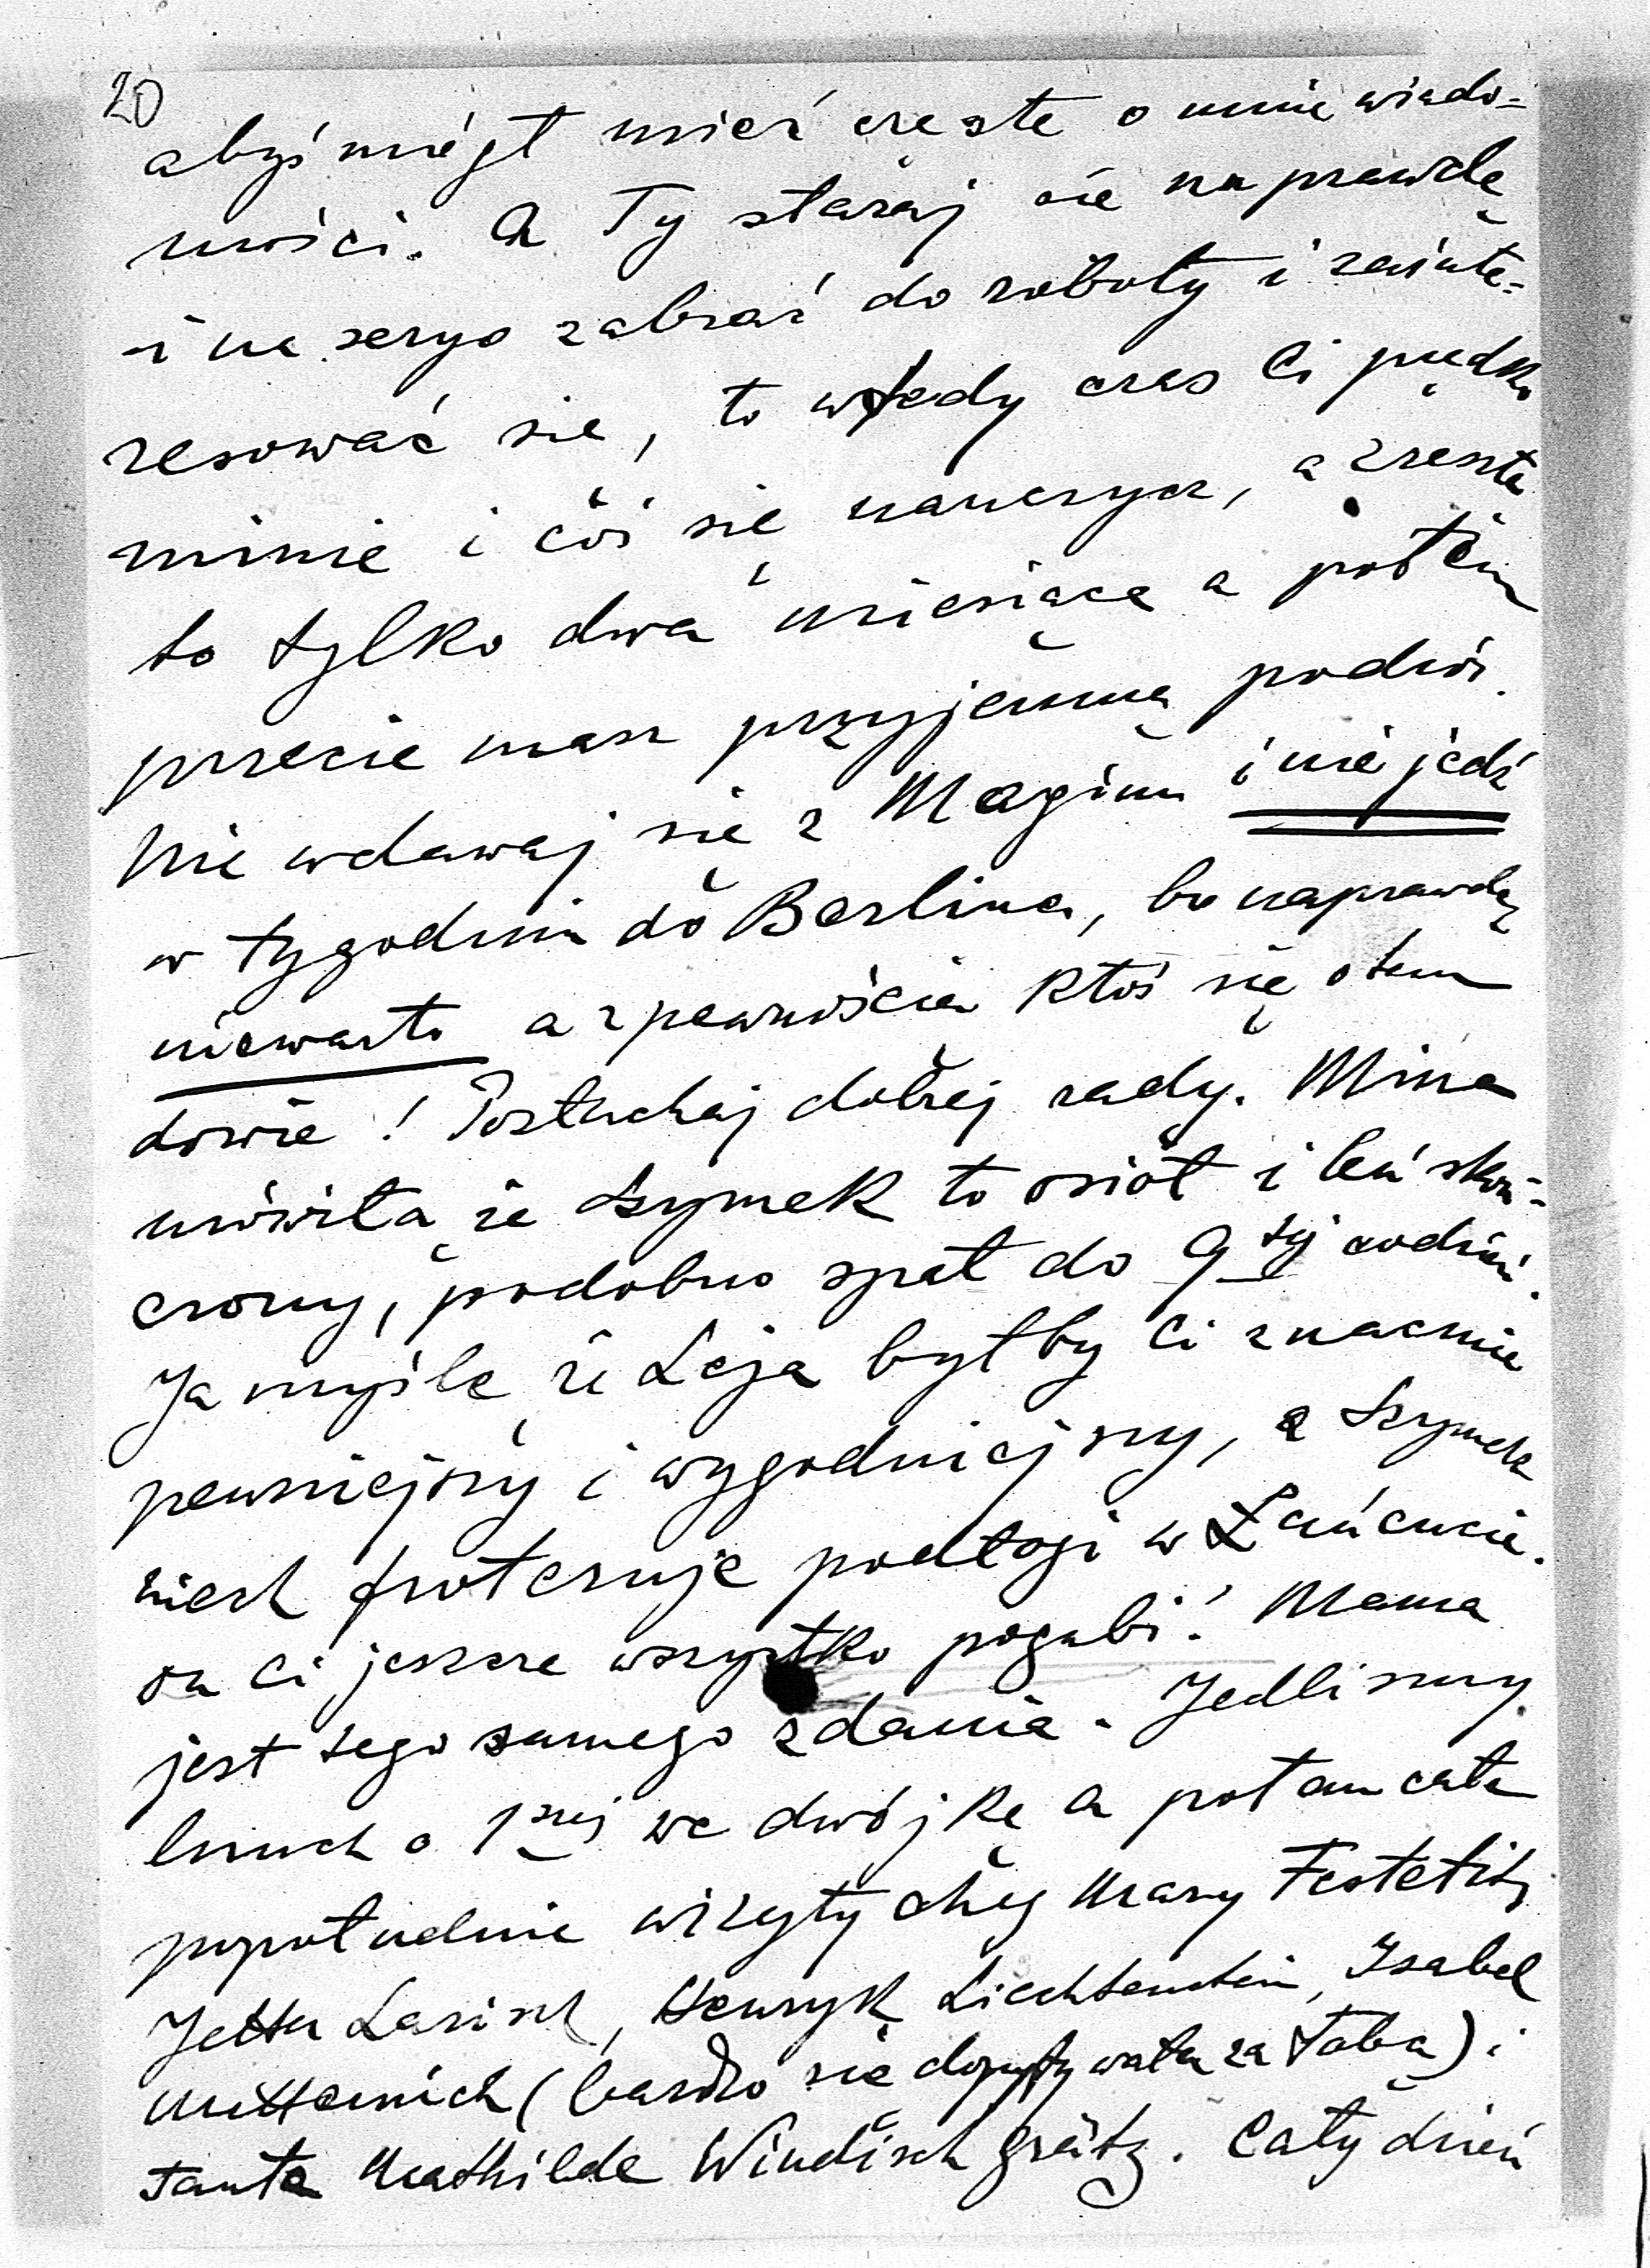 20
abyś mógł mieć częste o mnie wiado=
mości. A Ty staraj się na prawdę
i na seryo zabrać do roboty i zainte=
resować się, to wtedy czas Ci prędko
minie i coś się nauczysz, a zresztą
to tylko dwa miesiące a potem
przecie masz przyjemną podróż.
Nie wdawaj się z Magim i nie jedź
w tygodniu do Berlina, bo naprawdę
niewarto a z pewnością ktoś się o tem
dowie! Posłuchaj dobrej rady. Mina
mówiła że Szymek to osioł i leń skoń=
czony, podobno spał do 9tej godziny.
Ja myślę że Leja byłby Ci znacznie
pewniejszy i wygodniejszy, a Szymek
niech froteruje podłogi w Łańcucie.
on Ci jeszcze wszystko pogubi! Mama
jest tego samego zdania. Jedliśmy
lunch o 1szej we dwójkę a potem całe
popołudnie wizyty Mary Festetits,
Jetta Larisch, Henryk Liechtenstein, Isabel
Metternich (bardzo się dopytywała za Tobą) i
Tante Mathilde Windischgrätz. Cały dzień